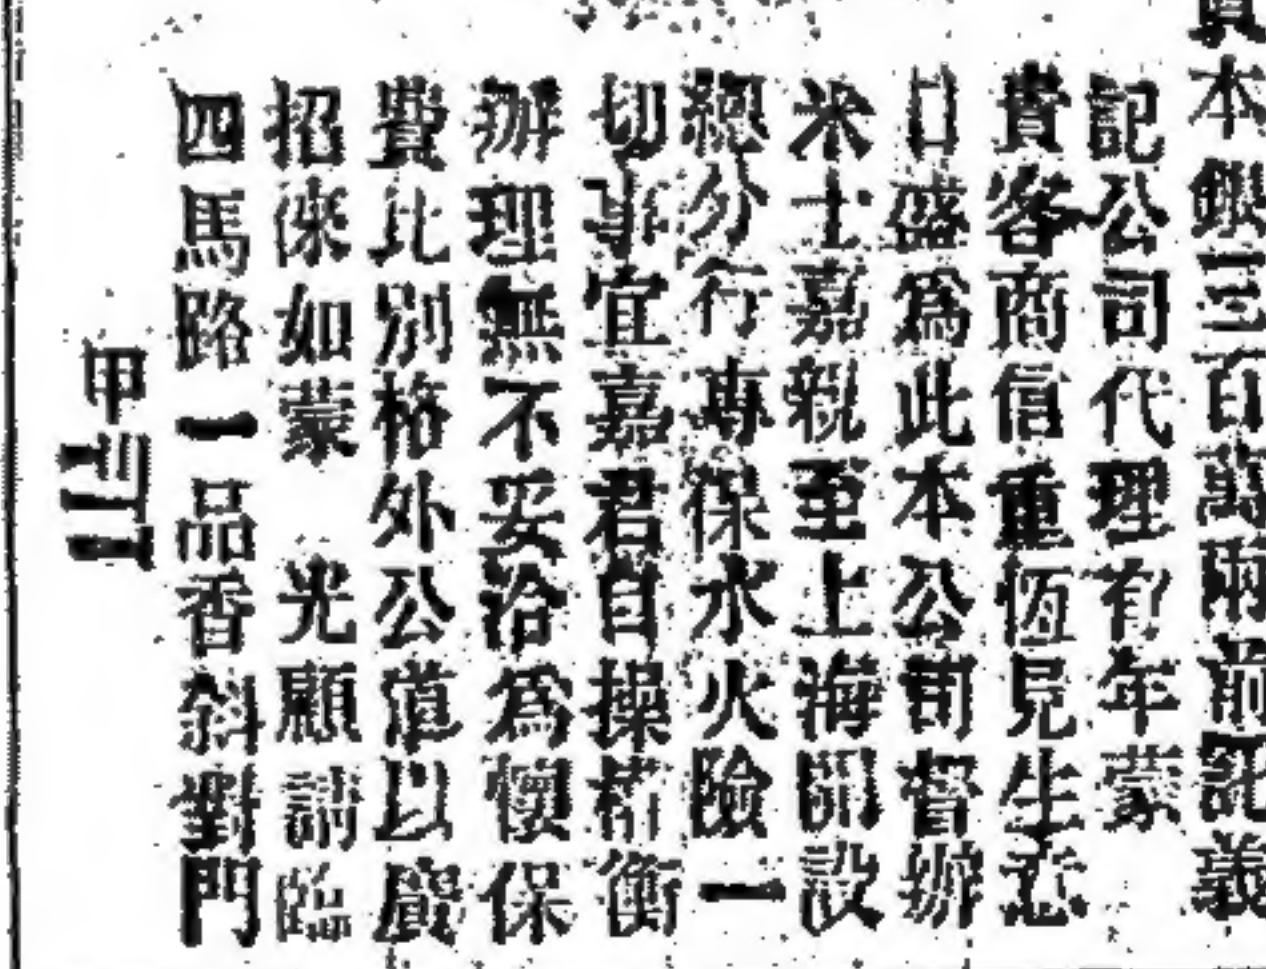 資本銀三百萬兩前託義
記公司代理有年蒙
貴客商信重恆見生意
日盛爲此本公司督辦
米士嘉親至上海開設
總分行専保水火險一
切事宜嘉君自操權衡
辦理無不妥洽爲懷保
費比別格外公道以廣
招徠如蒙 光顧請臨
四馬路一品香斜對門
甲